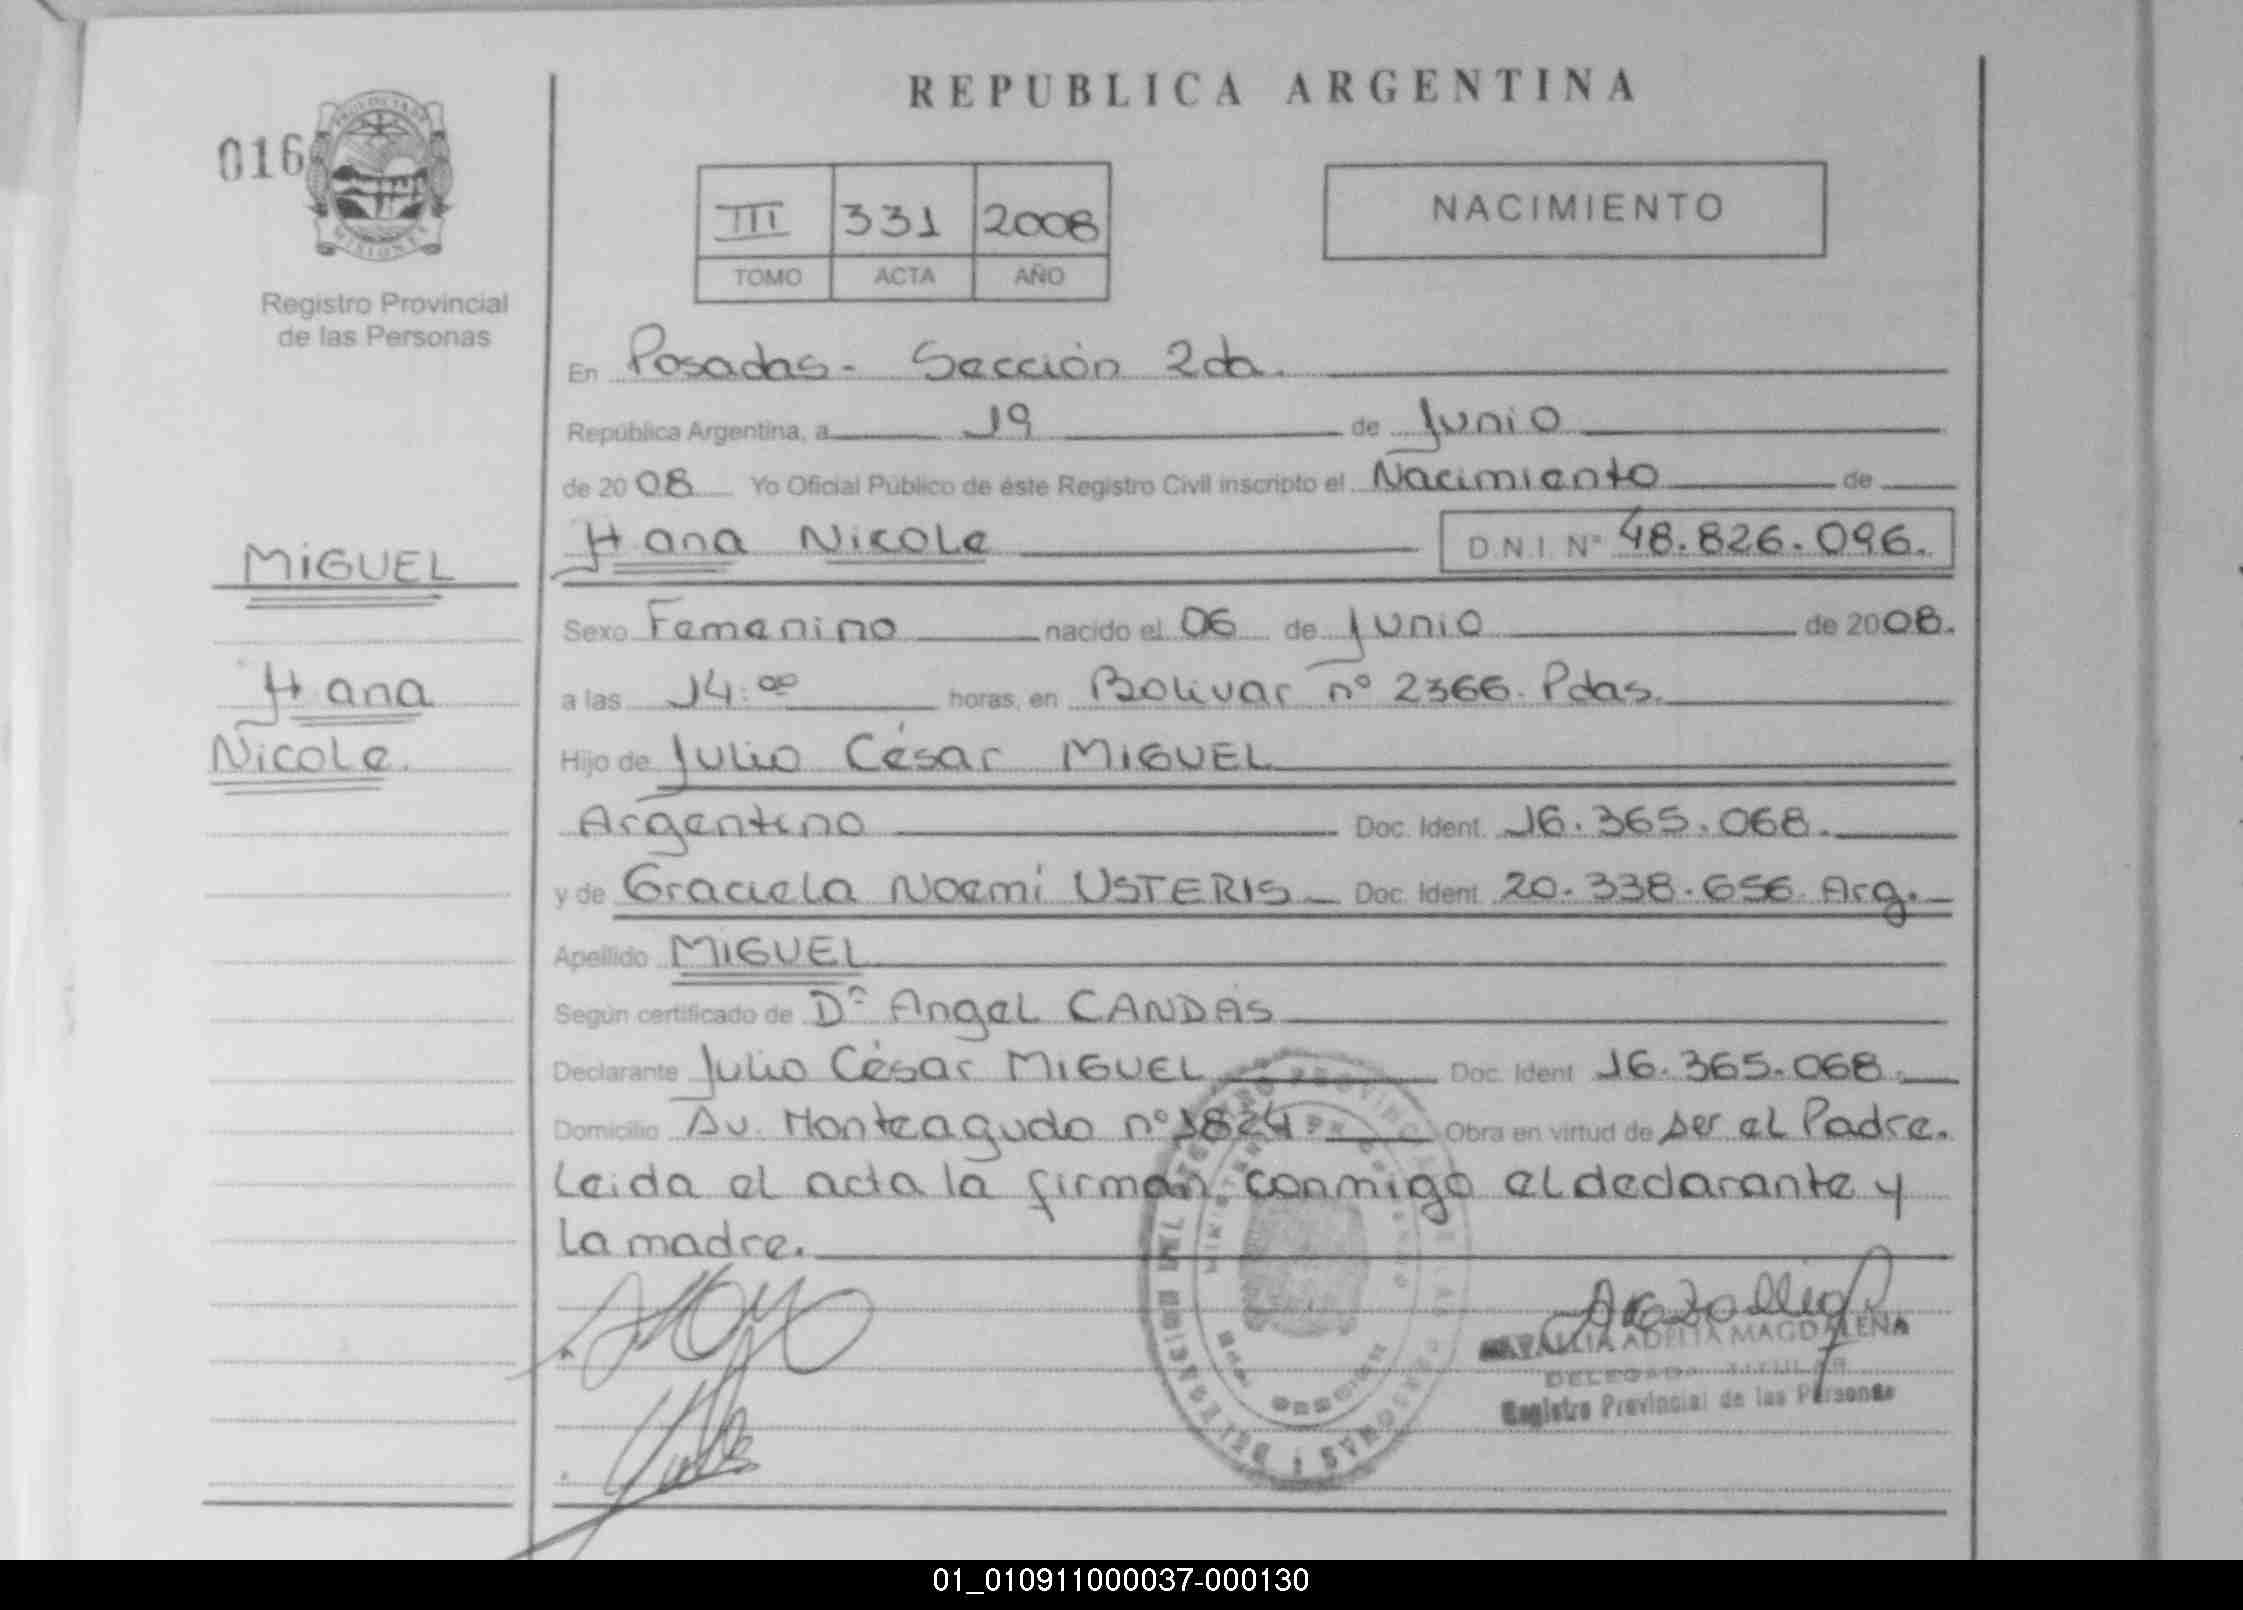 REPUBLICA ARGENTINA
016
PROVINCIA DE
MISIONES
III 331 2008
TOMO ACTA AÑO
NACIMIENTO
Registro Provincial
de las Personas
En Posadas - Sección 2da.
República Argentina, a 19 de Junio
de 2008 Yo Oficial Público de éste Registro Civil inscripto el Nacimiento de
Hana Nicole D.N.I. Nº 48.826.096.
MIGUEL
Sexo Femenino nacido el 06 de Junio de 2008.
Hana
a las 14:00 horas, en Bolivar nº 2366. Pdas.
Nicole.
Hijo de Julio César MIGUEL
Argentino Doc. Ident. 16.365.068.
y de Graciela Noemí USTERIS Doc. Ident. 20.338.656. Arg.
Apellido MIGUEL
Según certificado de Dr Angel CANDAS
Declarante Julio César MIGUEL Doc. Ident 16.365.068.
Domicilio Av. Monteagudo nº 1824 Obra en virtud de ser el Padre.
Leida el acta la firman conmigo el declarante y
la madre.
ADELIA MAGDALENA
DELEGADA TITULAR
Registro Provincial de las Personas
01_010911000037-000130